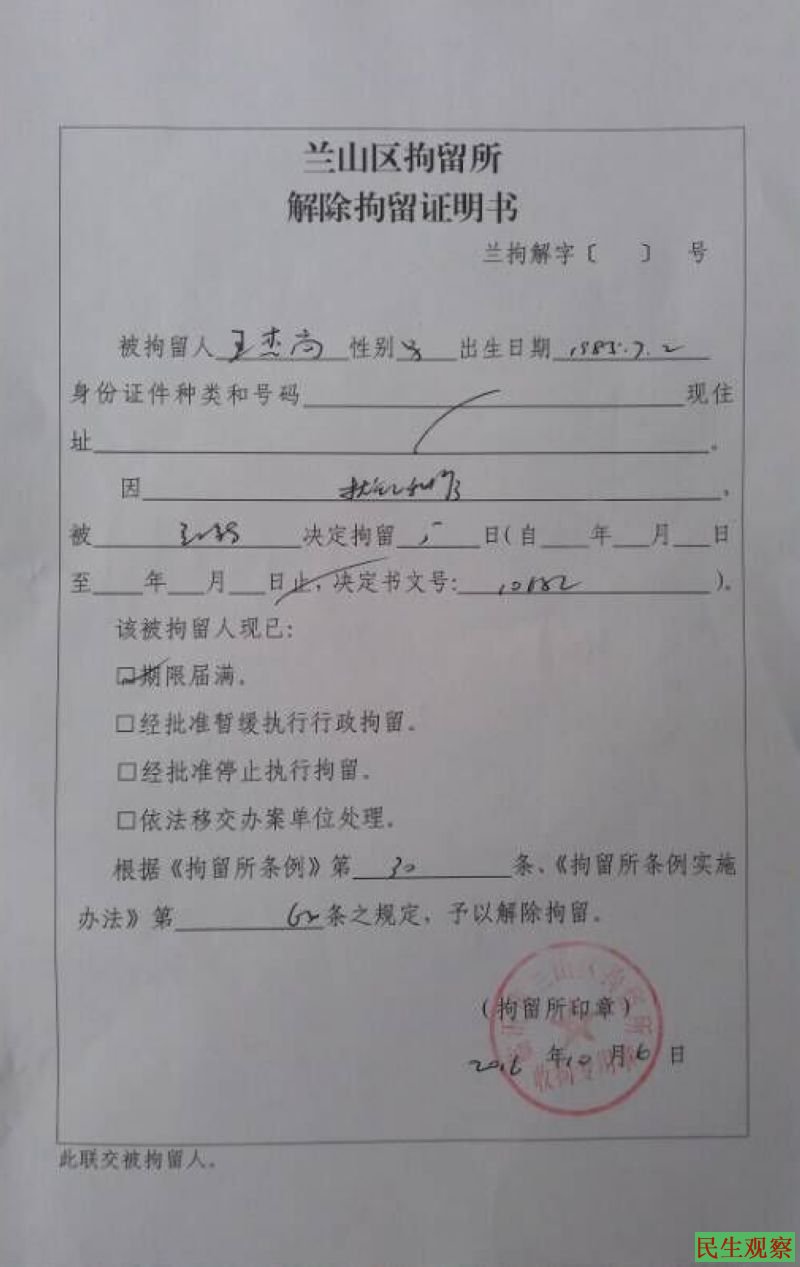 兰山区拘留所
解除拘留证明书
兰拘解字〔 〕 号
被拘留人 王杰尚 性别 出生日期 1985.7.2
身份证件种类和号码 现住
址 。
因 ,
被 决定拘留 日(自 年 月 日
至 年 月 日止,决定书文号: )。
该被拘留人现已:
□期限届满。
□经批准暂缓执行行政拘留。
□经批准停止执行拘留。
□依法移交办案单位处理。
根据《拘留所条例》第 30 条、《拘留所条例实施
办法》第 62 条之规定,予以解除拘留。
(拘留所印章)
2016 年 10 月 6 日
此联交被拘留人。
民生观察